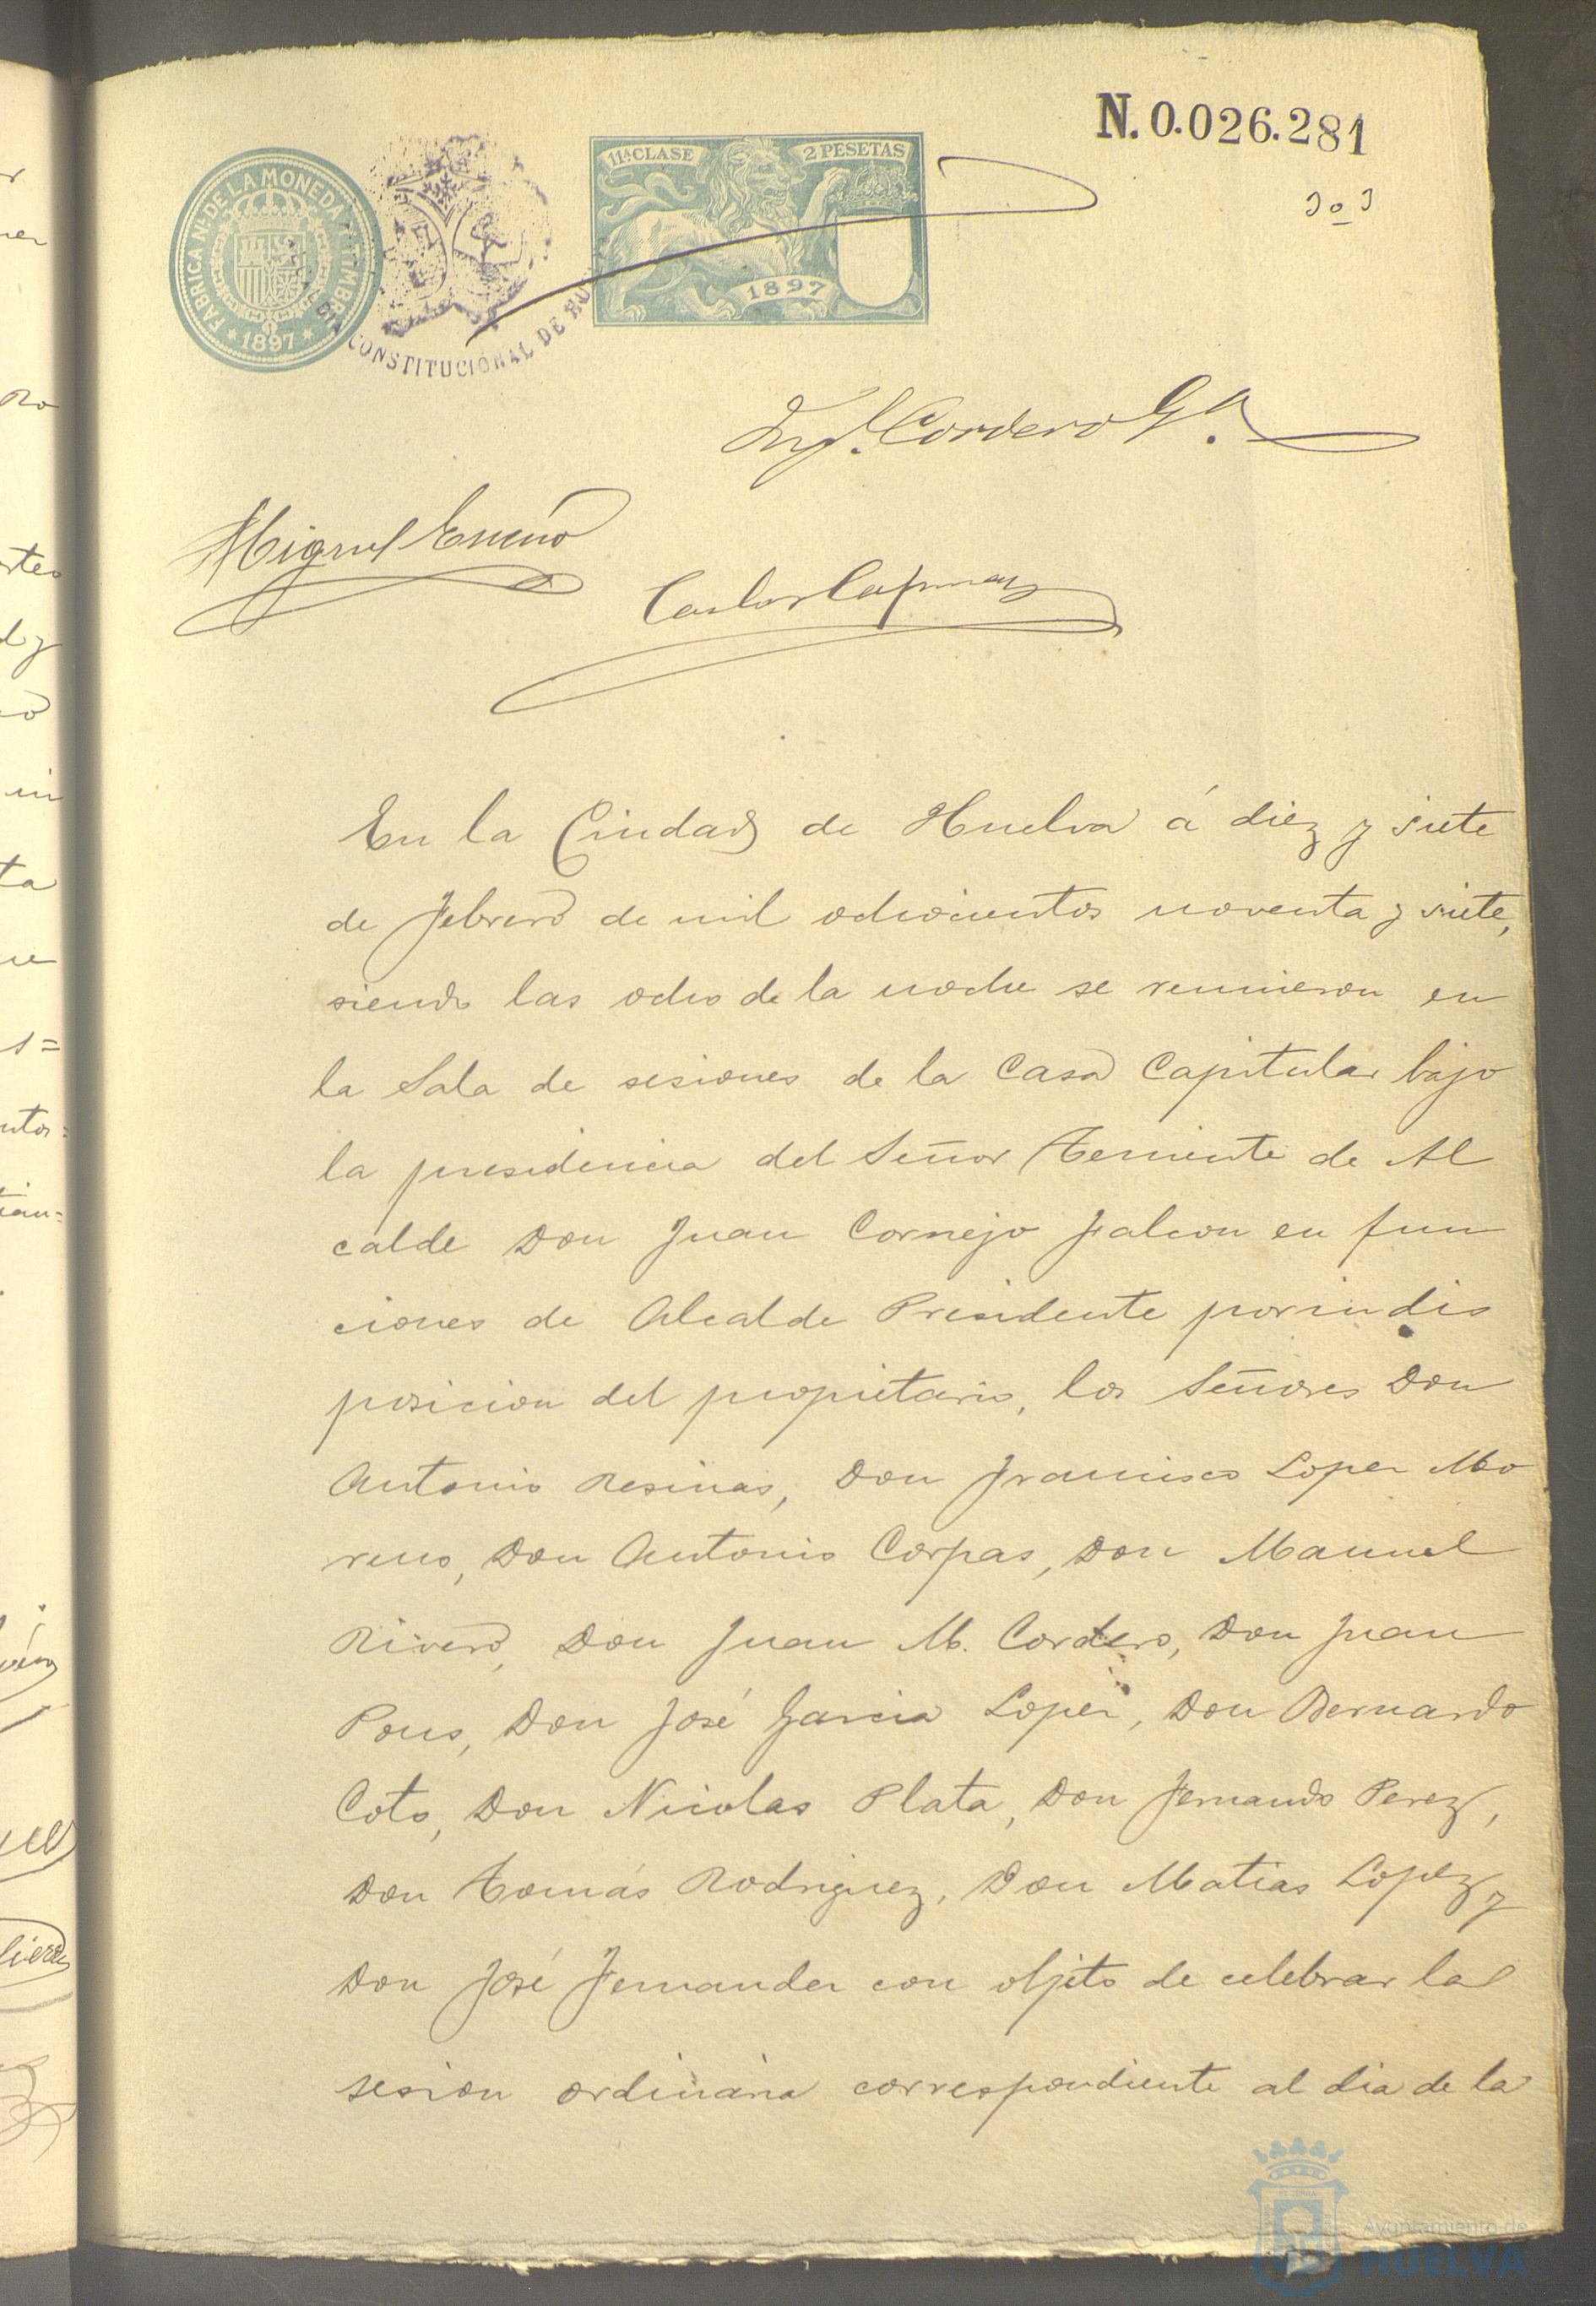 N. 0.026.281
11ª CLASE 2 PESETAS
1897
FABRICA N. DE LA MONEDA Y TIMBRE
* 1897 *
CONSTITUCIONAL DE HU
Cordero Gª.
Miguel
Carlos
En la Ciudad de Huelva á diez y siete
de Febrero de mil ochocientos noventa y siete,
siendo las ocho de la noche se reunieron en
la Sala de sesiones de la Casa Capitular bajo
la presidencia del Señor Teniente de Al
calde Don Juan Cornejo Falcon en fun
ciones de Alcalde Presidente por indis
posicion del propietario, los Señores Don
Antonio Resinas, Don Francisco Lopez Mo
reno, Don Antonio Corpas, Don Manuel
Rivero, Don Juan M. Cordero, Don Juan
Pons, Don José Garcia Lopez, Don Bernardo
Coto, Don Nicolas Plata, Don Fernando Perez,
Don Tomás Rodriguez, Don Matias Lopez y
Don José Fernandez con objeto de celebrar la
sesion ordinaria correspondiente al dia de la
Ayuntamiento de
HUELVA